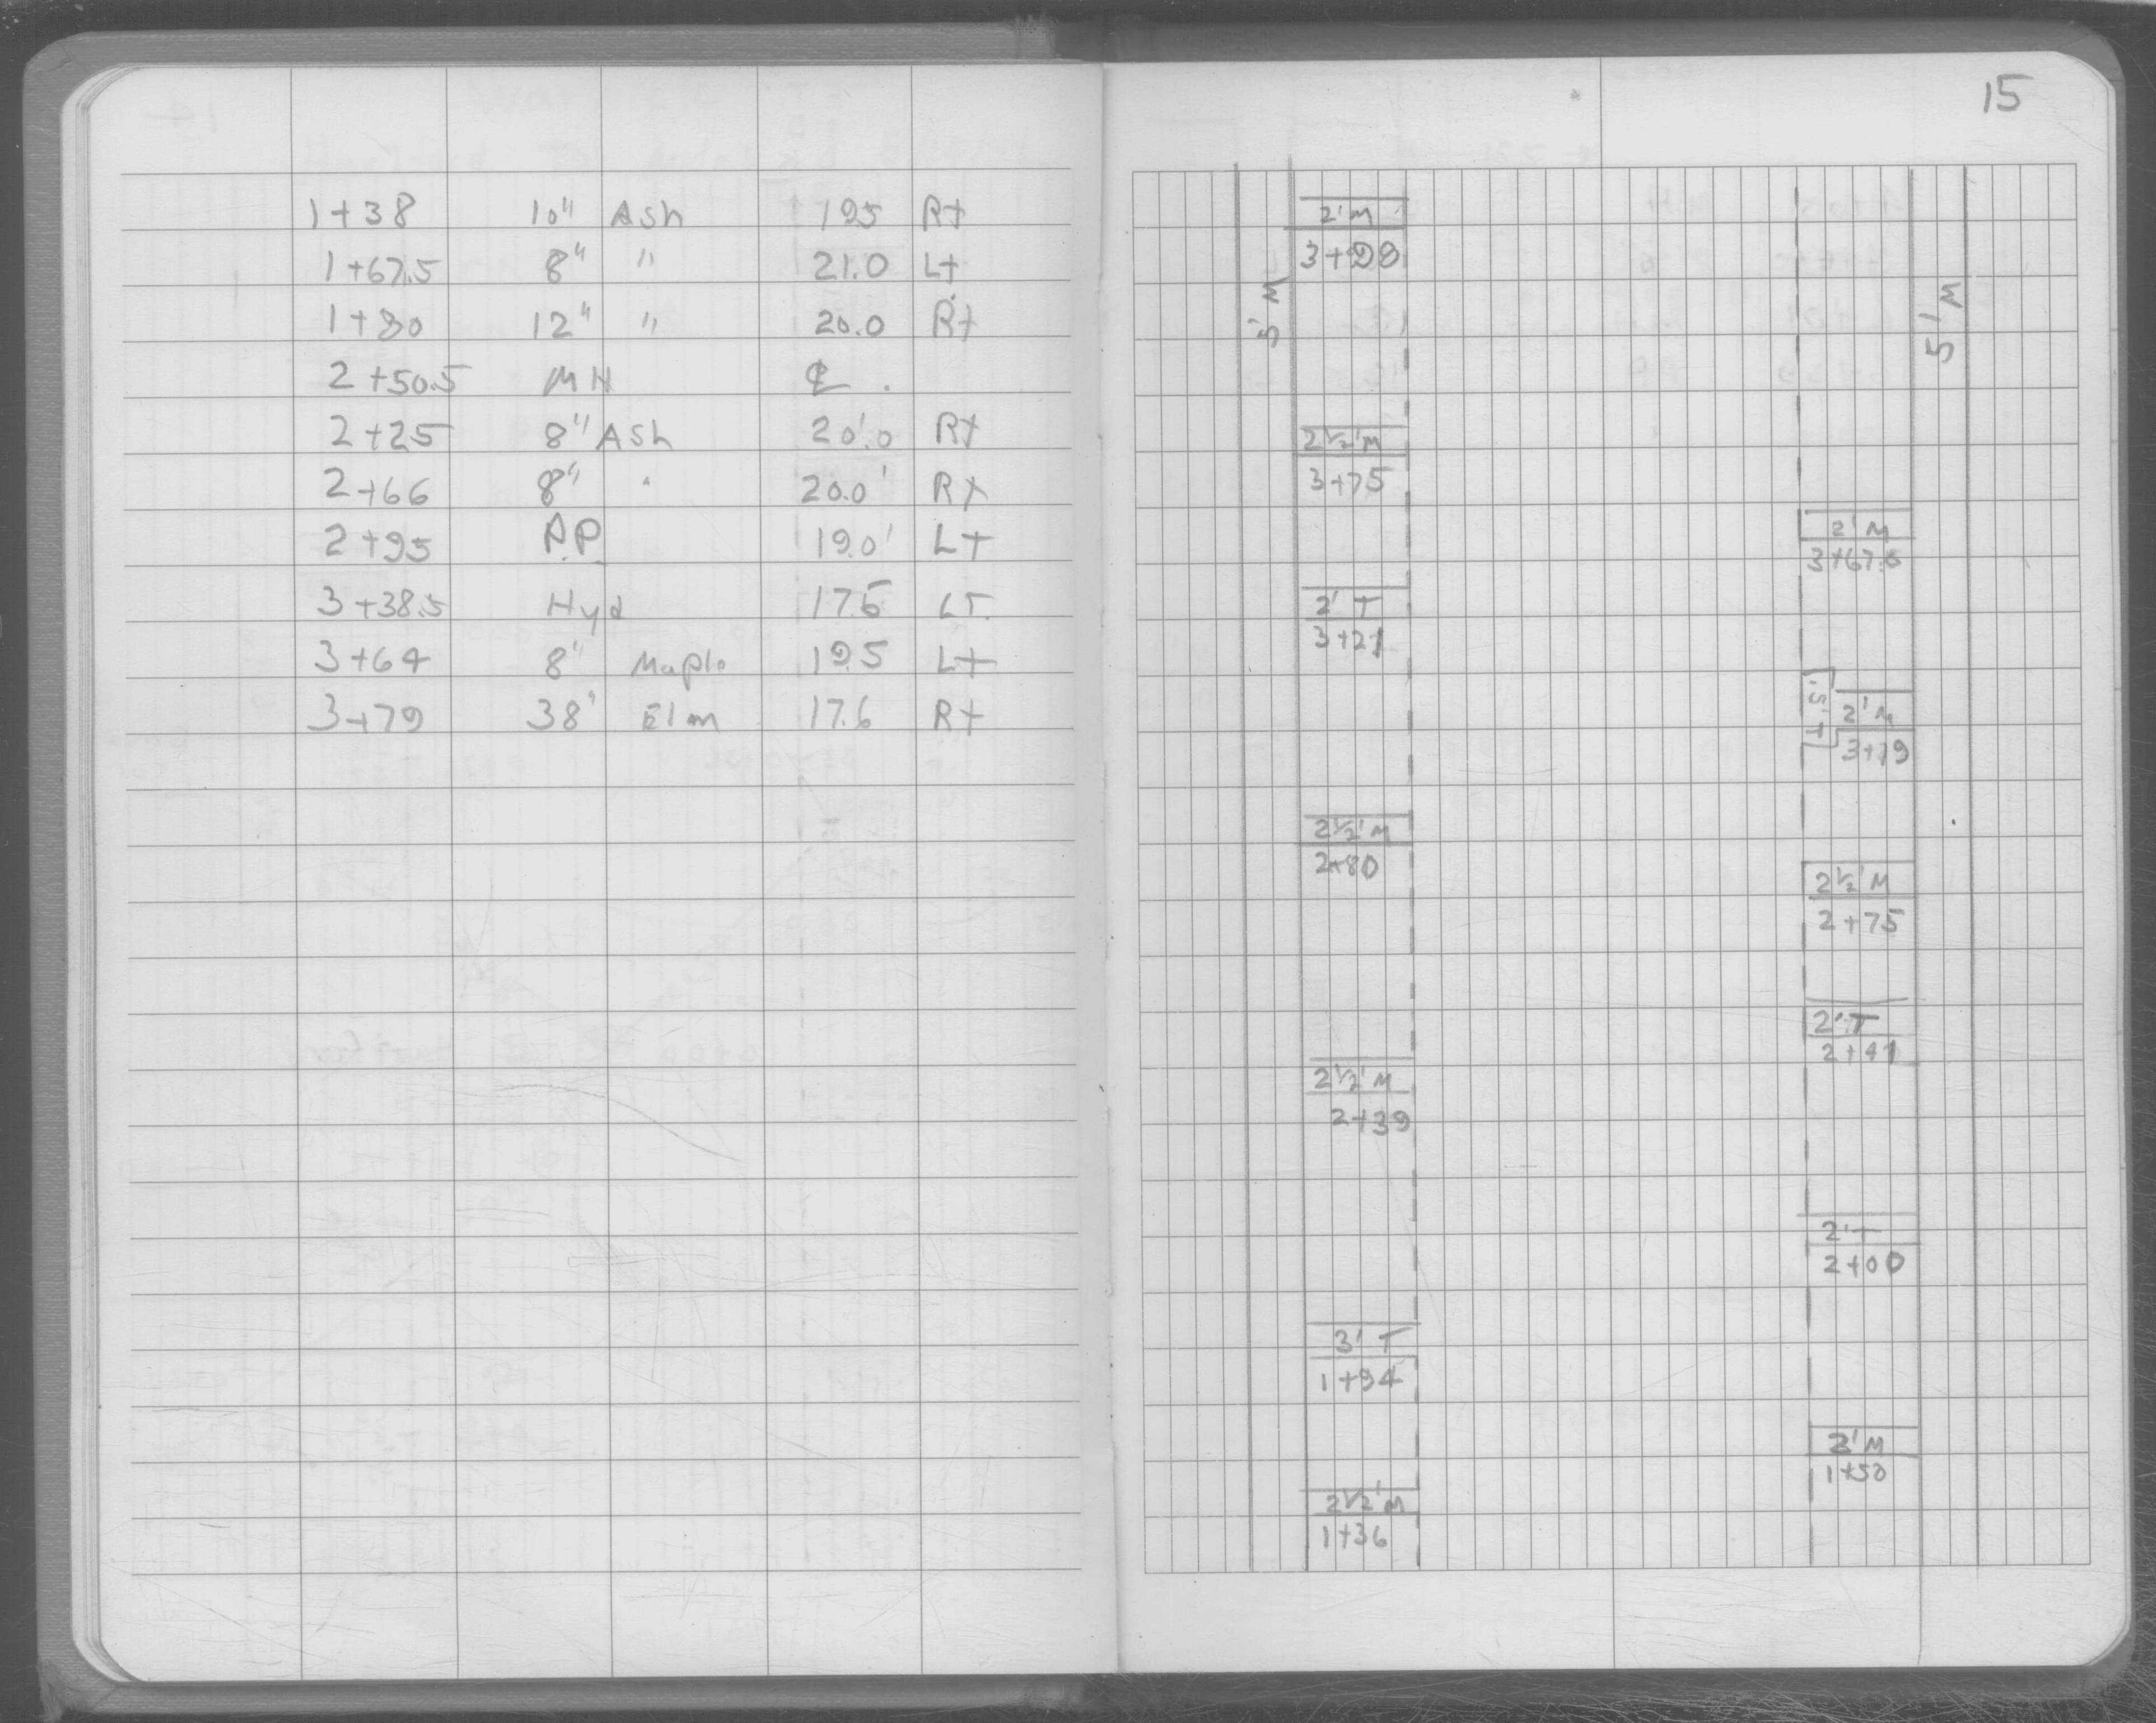 1+38 10" Ash 19.5 Rt
1+67.5 8" " 21.0 Lt
1+80 12" " 20.0 Rt
2+50.5 MH ℄ .
2+25 8" Ash 20'.0 Rt
2+66 8" " 20.0' Rt
2+95 P.P. 19.0' Lt
3+38.5 Hyd 17.6 LT.
3+64 8" Maple 19.5 Lt
3+79 38" Elm 17.6 Rt
15
2' M
5' M
5' M
2 1/2' M
3+75
2' M
2' T
3+21
.5' T
2' M
3+19
2 1/2' M
2+80
2 1/2' M
2+75
2' T
2+41
2 1/2' M
2+39
2' T
2+00
3' T
1+94
2' M
1+50
2 1/2' M
1+36